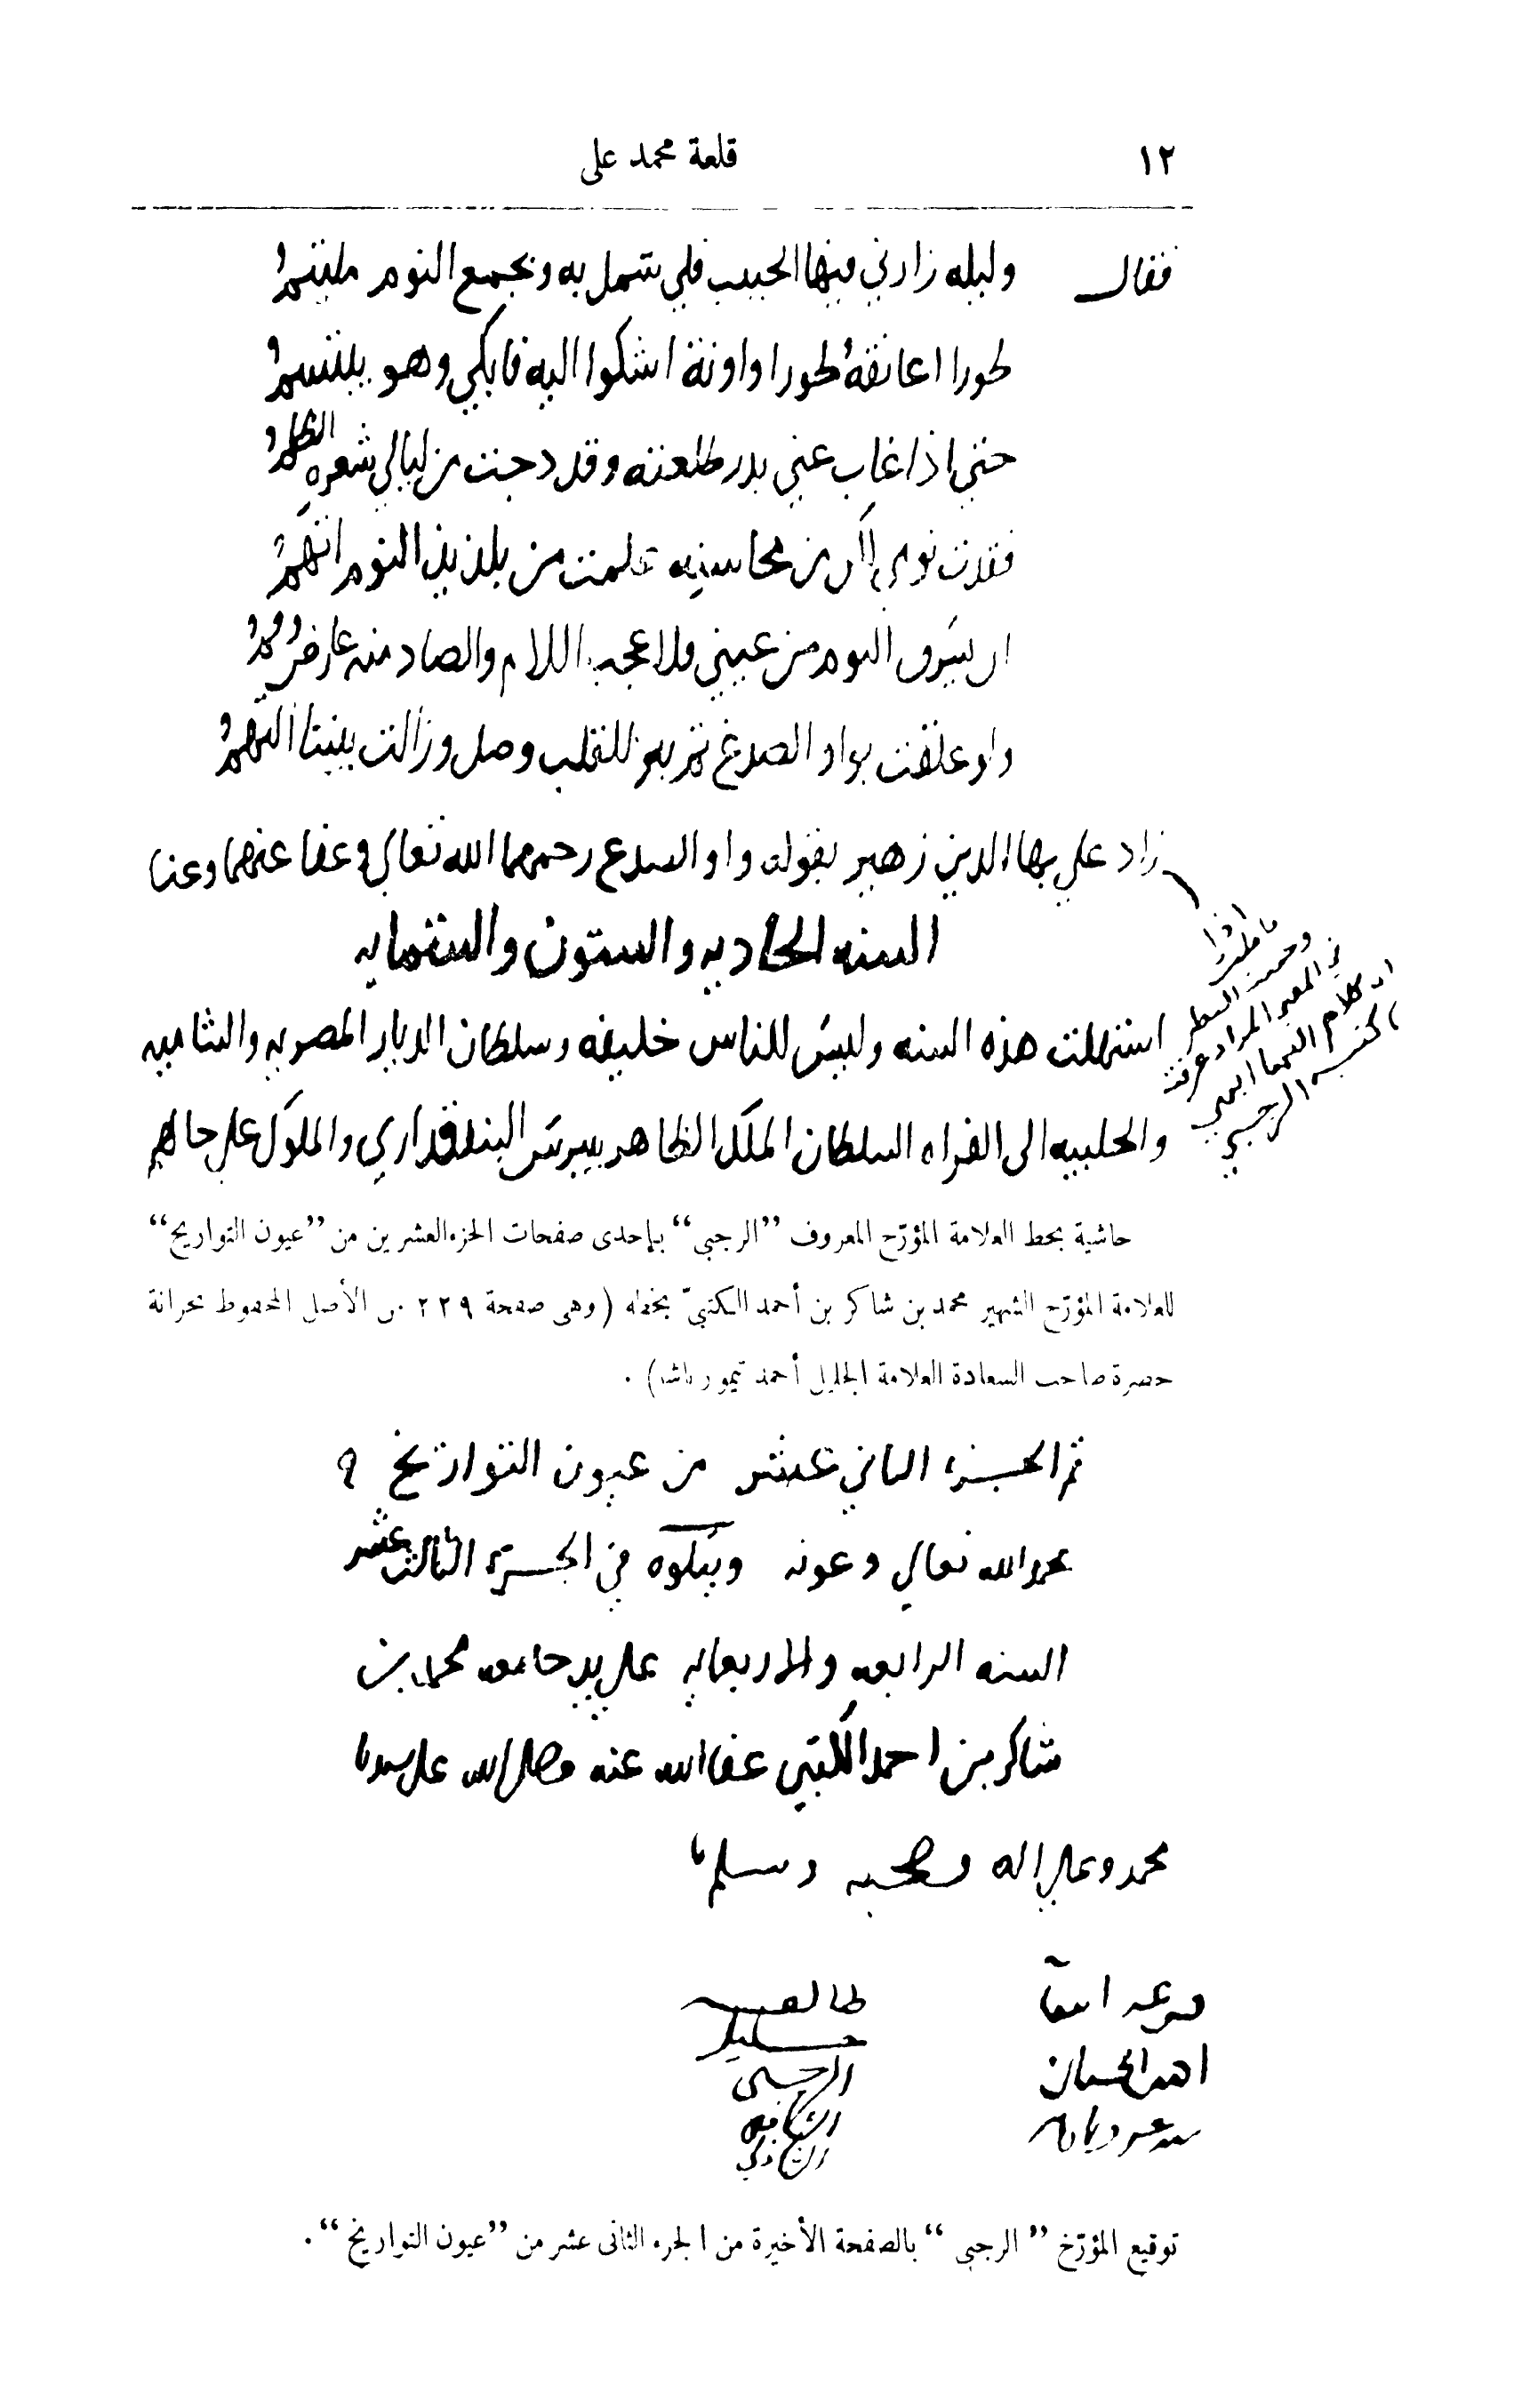 ١٢ قلعة محمد على
فقال وليله زارني فيها الحبيب فلي شمل به وبجمع النوم ملتئم
طورا اعانقه طورا واونة اشكوا اليه فابكي وهو يبتسم
حتى اذا غاب عني بدر طلعته وقد دجت من ليالي شعره الظلم
فقدت نومي من محاسنه علمت من بلذيذ النوم اتهم
ان يسرق النوم من عيني فلا عجب اللام والصاد منه عارض وفم
واو علقت بواو الصدغ للقلب وصل وزالت بيننا التهم
زاد علي بهاء الدين زهير بقوله واو الصدغ رحمهما الله تعالى وعفا عنهما وعنا
السنه الحاديه والستون والستمايه
استهلت هذه السنه وليس للناس خليفه وسلطان الديار المصريه والشاميه
والحلبيه الى الفراه السلطان الملك الظاهر بيبرس البندقداري والملوك على حالهم
اذا تاملت
وحسب النظر
في المعنى المراد عرفت
ان كلام البها ابهى
كتبه الرجبي
حاشية بخط العلامة المؤرّخ المعروف ”الرجبي“ بإحدى صفحات الجزء العشرين من ”عيون التواريخ“
للعلامة المؤرّخ الشهير محمد بن شاكر بن أحمد الكتبيّ بخطه (وهى صفحة ٢٢٩ من الأصل المحفوظ بخزانة
حضرة صاحب السعادة العلامة الجليل أحمد تيمور باشا) .
تم الجزء الثاني عشر من عيون التواريخ
بحمد الله تعالى وعونه ويتلوه في الجزء الثالث عشر
السنه الرابعه والاربعمايه على يد جامعه محمد بن
شاكر بن احمد الكتبي عفا الله عنه وصلى الله على سيدنا
محمد وعلى اله وصحبه وسلم
طالعه
خليل
الرجبي
الشافعي
الشاذلي
توقيع المؤرّخ ”الرجبي“ بالصفحة الأخيرة من الجزء الثانى عشر من ”عيون التواريخ“ .